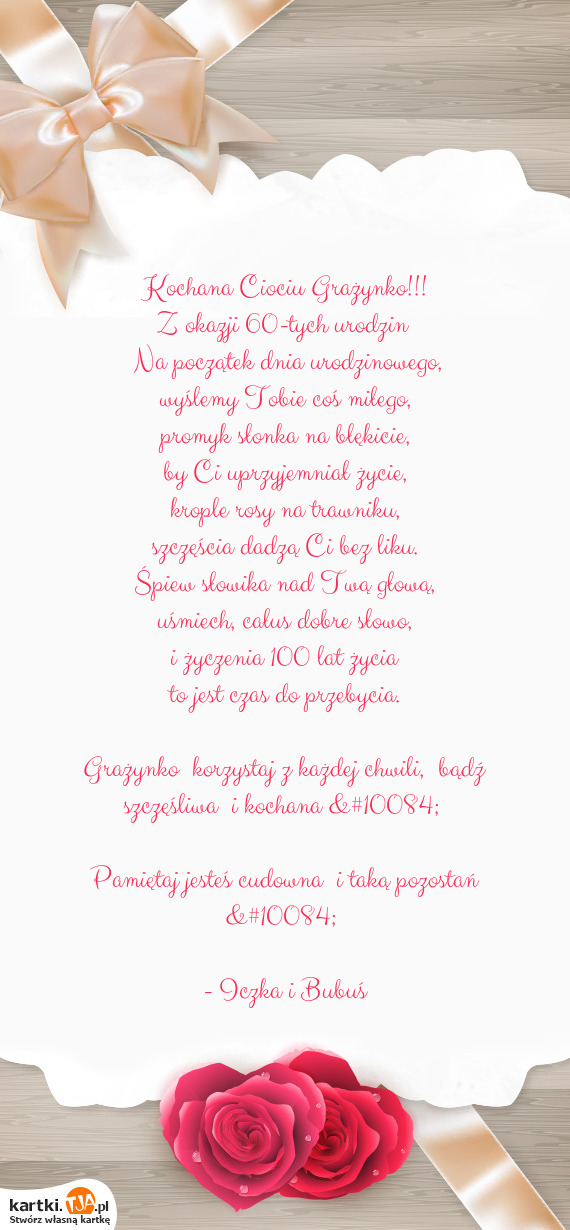 Kochana Ciociu Grażynko!!!
Z okazji 60-tych urodzin
Na początek dnia urodzinowego,
wyślemy Tobie coś miłego,
promyk słonka na błękicie,
by Ci uprzyjemniał życie,
krople rosy na trawniku,
szczęścia dadzą Ci bez liku.
Śpiew słowika nad Twą głową,
uśmiech, całus dobre słowo,
i życzenia 100 lat życia
to jest czas do przebycia.
Grażynko korzystaj z każdej chwili, bądź
szczęśliwa i kochana &#10084;
Pamiętaj jesteś cudowna i taką pozostań
&#10084;
- Iczka i Bubuś
kartki.TJA.pl
Stwórz własną kartkę